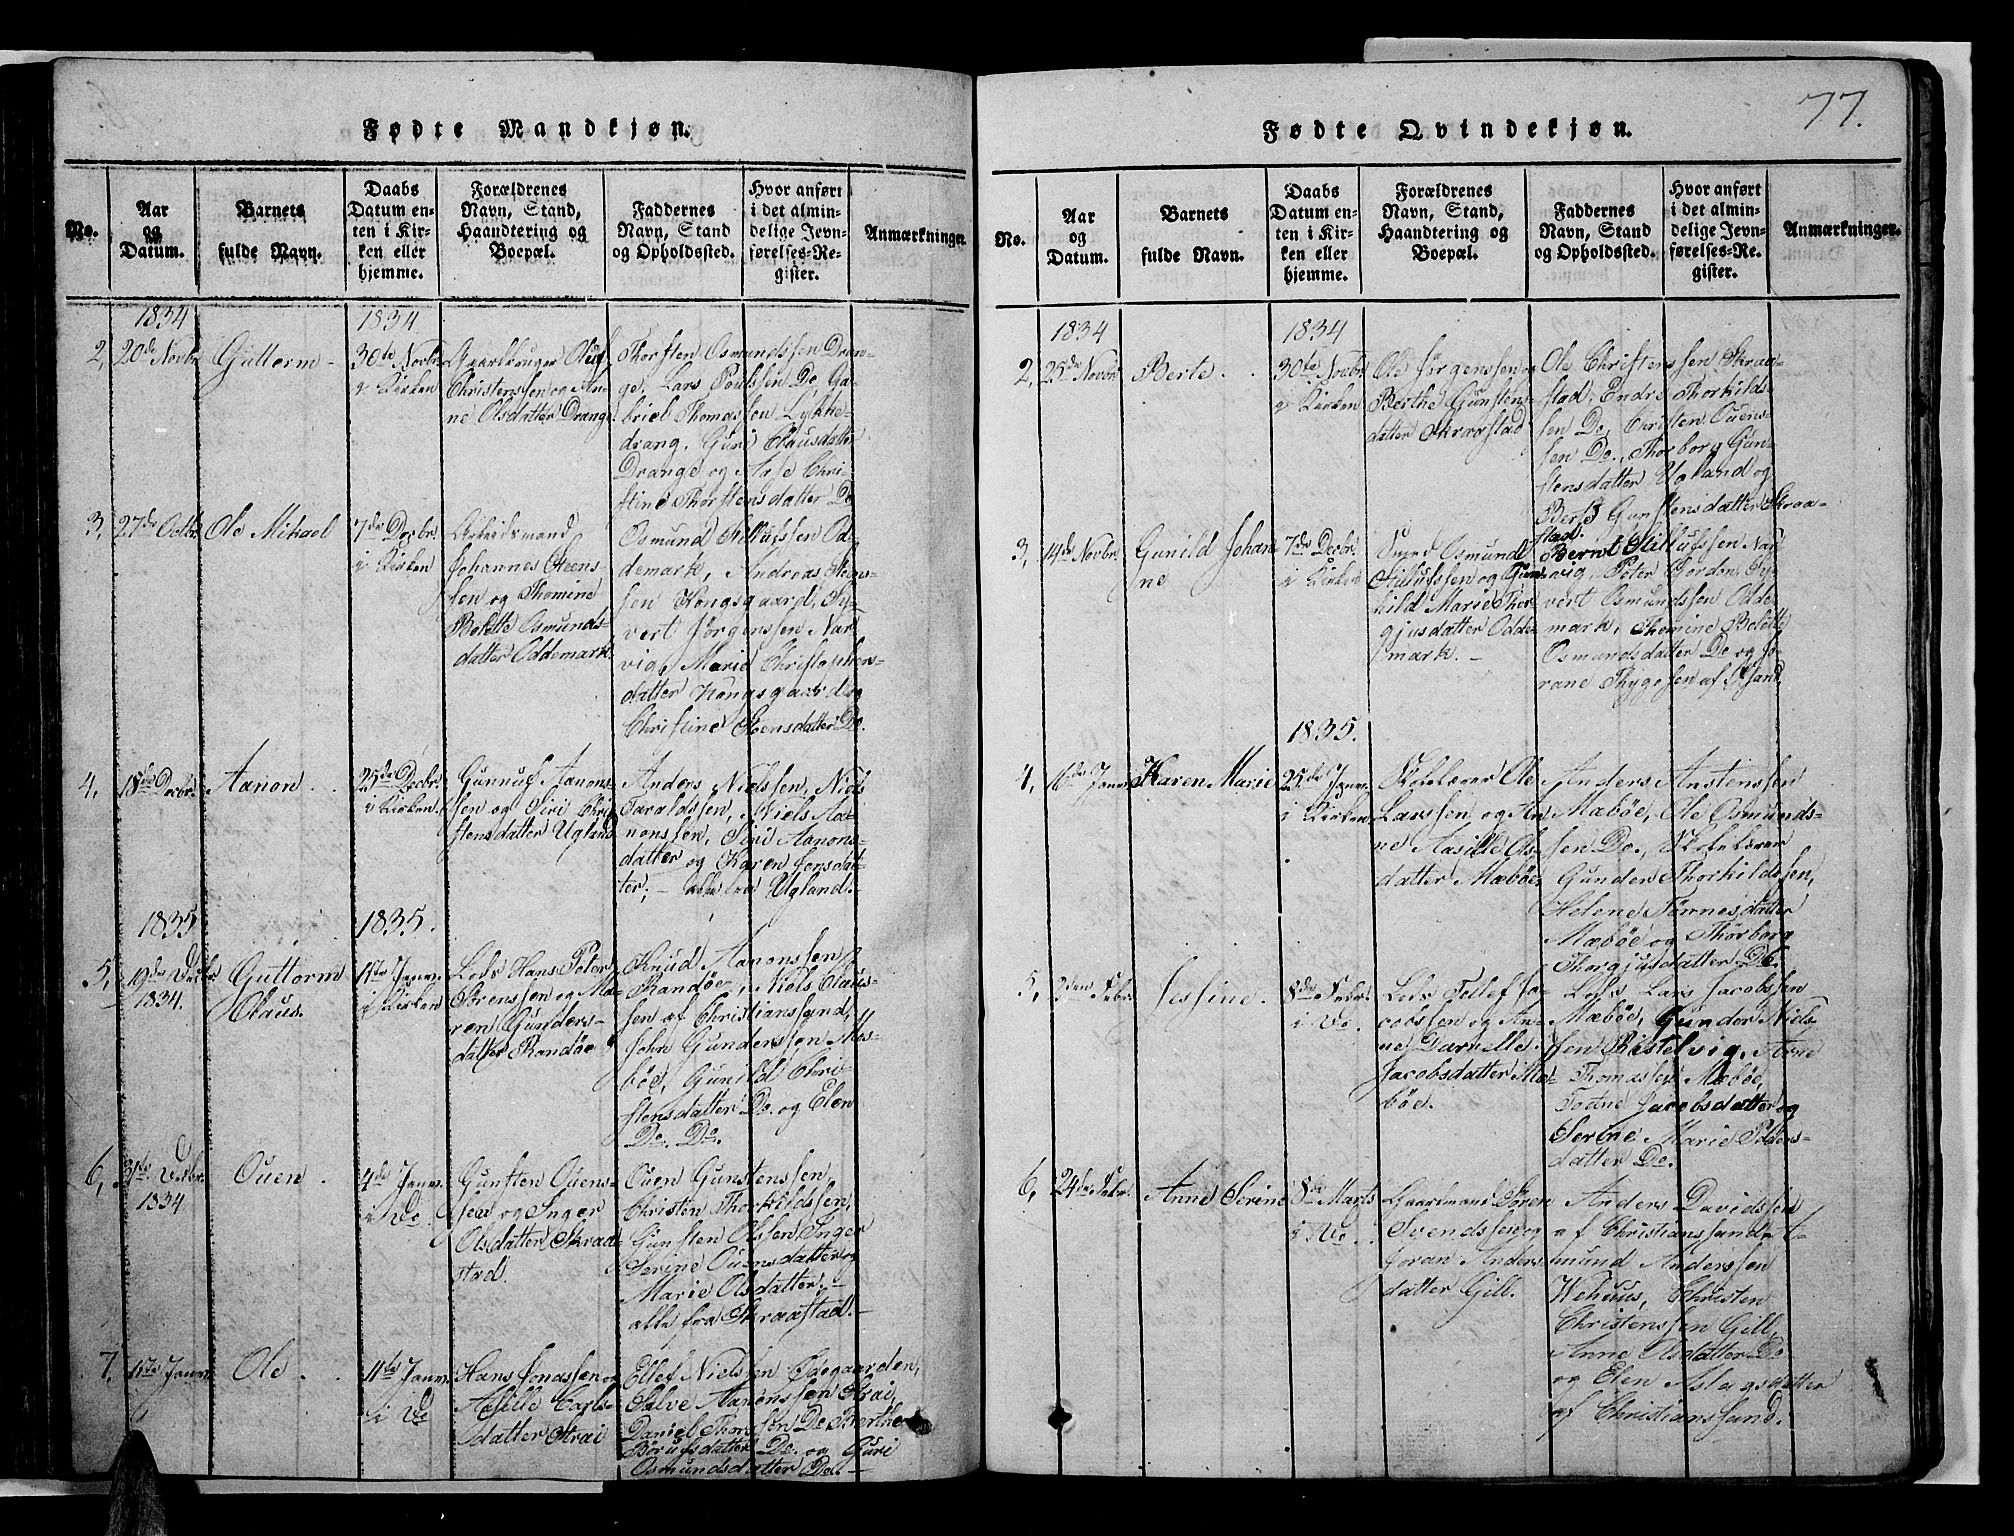 77.
Fødte Mandkjøn.
No.
Aar
og
Datum.
Barnets
fulde Navn.
Daabs
Datum en-
ten i Kir-
ken eller
hjemme.
Forældrenes
Navn, Stand,
Haandtering og
Boepæl.
Faddernes
Navn, Stand
og Opholdssted.
Hvor anført
i det almin-
delige Jevn-
førelses-Re-
gister.
Anmærkninger.
1834
1834
2, 20de Novbr
Guttorm
30te Novbr
i Kirken
Gaardbruger Oluf
Christenssen og An-
ne Olsdatter Drange
Thorsten Osmundssen Dran-
ge, Lars Poulssen Do, Ga-
briel Thomassen Lykke-
drang, Guri Clausdatter
Drange og Aase Chri-
stine Thorstensdatter Do
3, 27de Octbr
Ole Mikael
7de Decbr
i Kirken
Arbeidsmand
Johannes Steens-
sen og Thomine
Bolette Osmunds-
datter Oddemark
Osmund Stillufssen Od-
demark, Andreas Steens-
sen Kongsgaard, Sy-
vert Jørgenssen Nar-
vig, Marie Christophers-
datter Kongsgaard og
Christine Steensdatter Do.
4, 18de Decbr.
Aanon.
25de Decbr.
i Kirken.
Gunnuf Aanons-
sen og Siri Chri-
stensdatter Ugland
Anders Nielssen, Niels
Taraldssen, Niels Aa-
nonssen, Siri Aanons-
datter og Karen Jensdat-
ter; - alle fra Ugland.
1835
1835.
5, 19de Decbr
1834.
Guttorm
Claus.
1ste Janr.
i Kirken
Lods Hans Peter
Sørenssen og Ma-
ren Gunders-
datter Randøe
Knud Aanonssen
Randøe, Niels Claus-
sen af Christianssand,
John Gunderssen Mos-
bøe, Gunild Chri-
stensdatter Do. og Elen
Do. Do.
6, 31te Decbr.
1834
Ouen.
4de Janr.
i Do.
Gunsten Ouens-
sen og Inger
Olsdatter Skraa-
stad.
Ouen Gunstenssen,
Christen Thorkildssen,
Gunsten Olssen, Inger
Serine Ouensdatter og
Marie Olsdatter; -
alle fra Skraastad. -
7, 1ste Janr.
Ole.
11te Janr.
i Do
Hans Jonassen og
Assille Carls-
datter Strai
Ellef Nielssen Ødegaarden,
Salve Aanonssen Strai,
Daniel Thorssen Do Berthe
Børufsdatter Do. og Guri
Osmundsdatter Do. -
Fødte Qvindekjøn.
No.
Aar
og
Datum.
Barnets
fulde Navn.
Daabs
Datum en-
ten i Kir-
ken eller
hjemme.
Forældrenes
Navn, Stand,
Haandtering og
Boepæl.
Faddernes
Navn, Stand
og Opholdssted.
Hvor anført
i det almin-
delige Jevn-
førelses-Re-
gister.
Anmærkninger.
1834
1834
2, 25de Novbr
Berte.
30te Novbr.
i Kirken
Ole Jørgenssen og
Berthe Gunstens-
datter Skraastad
Ole Christenssen Skraa-
stad, Endre Thorkilds-
sen Do, Christen Ouens-
sen Do., Thorborg Gun-
stensdatter Ugland og
Berte Gunstensdatter Skraa-
stad.
3, 14de Novbr.
Gunild Johan-
ne
7de Decbr.
i Kirken
Osmund
Stillufssen og Gun-
hild Marie Thor-
gjusdatter Odde-
mark. -
Bernt Stillufssen Nar-
vig, Peter Gordon, Sy-
vert Osmundssen Odde-
mark, Thomine Bolette
Osmundsdatter Do og Jo-
rane Thygesen af Chsand.
1835.
4, 6te Janr.
Karen Marie
25de Janr.
i Kirken
Skolelærer Ole
Larssen og An-
ne Aasille Ols-
datter Mæbøe,
Anders Anstenssen
Mæbøe, Ole Osmunds-
sen Do., Skolelærer
Gunder Thorkildssen,
Helene Tønnesdatter
Mæbøe og Thorborg
Thorgjusdatter Do.
5, 3den Febr.
Jessine.
8de Febr.
i Do.
Lods Tellef Ja-
cobssen og An-
ne Tarvelle
Jacobsdatter Mæ-
bøe.
Lods Lars Jacobssen
Mæbøe, Gunder Niels-
sen Ristelvig, Arne
Thomassen Mæbøe,
Todne Jacobsdatter og
Serine Marie Peders-
datter Do.
6, 24de Febr.
Anne Serine
8de Marts
i Do.
Gaardmand Søren
Svendssen og
Joran Anders-
datter Gill.
Anders Davidssen
af Christianssand, A-
mund Anderssen
Wehuus, Christen
Christenssen Gill,
Anne Olsdatter Do
og Elen Aslagsdatter
af Christianssand.